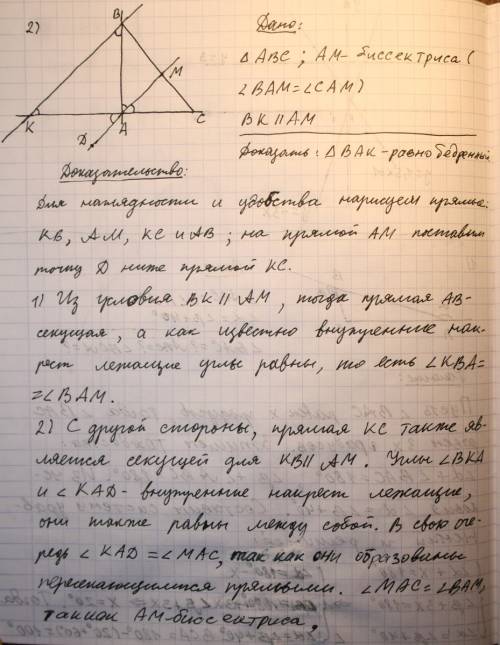 2)
B
M
K
A
C
D
Дано:
△ABC; AM-биссектриса (
∠BAM=∠CAM)
BK∥AM
Доказать: △BAK-равнобедренный
Доказательство:
Для наглядности и удобства нарисуем прямые:
KB, AM, KC и AB; на прямой AM поставим
точку D ниже прямой KC.
1) Из условия BK∥AM, тогда прямая AB-
секущая, а как известно внутренние нак-
рест лежащие углы равны, то есть ∠KBA=
=∠BAM.
2) С другой стороны, прямая KC также яв-
ляется секущей для KB∥AM. Углы ∠BKA
и ∠KAD- внутренние накрест лежащие,
они также равны между собой. В свою оче-
редь ∠KAD=∠MAC, так как они образованы
пересекающимися прямыми. ∠MAC=∠BAM,
так как AM-биссектриса.